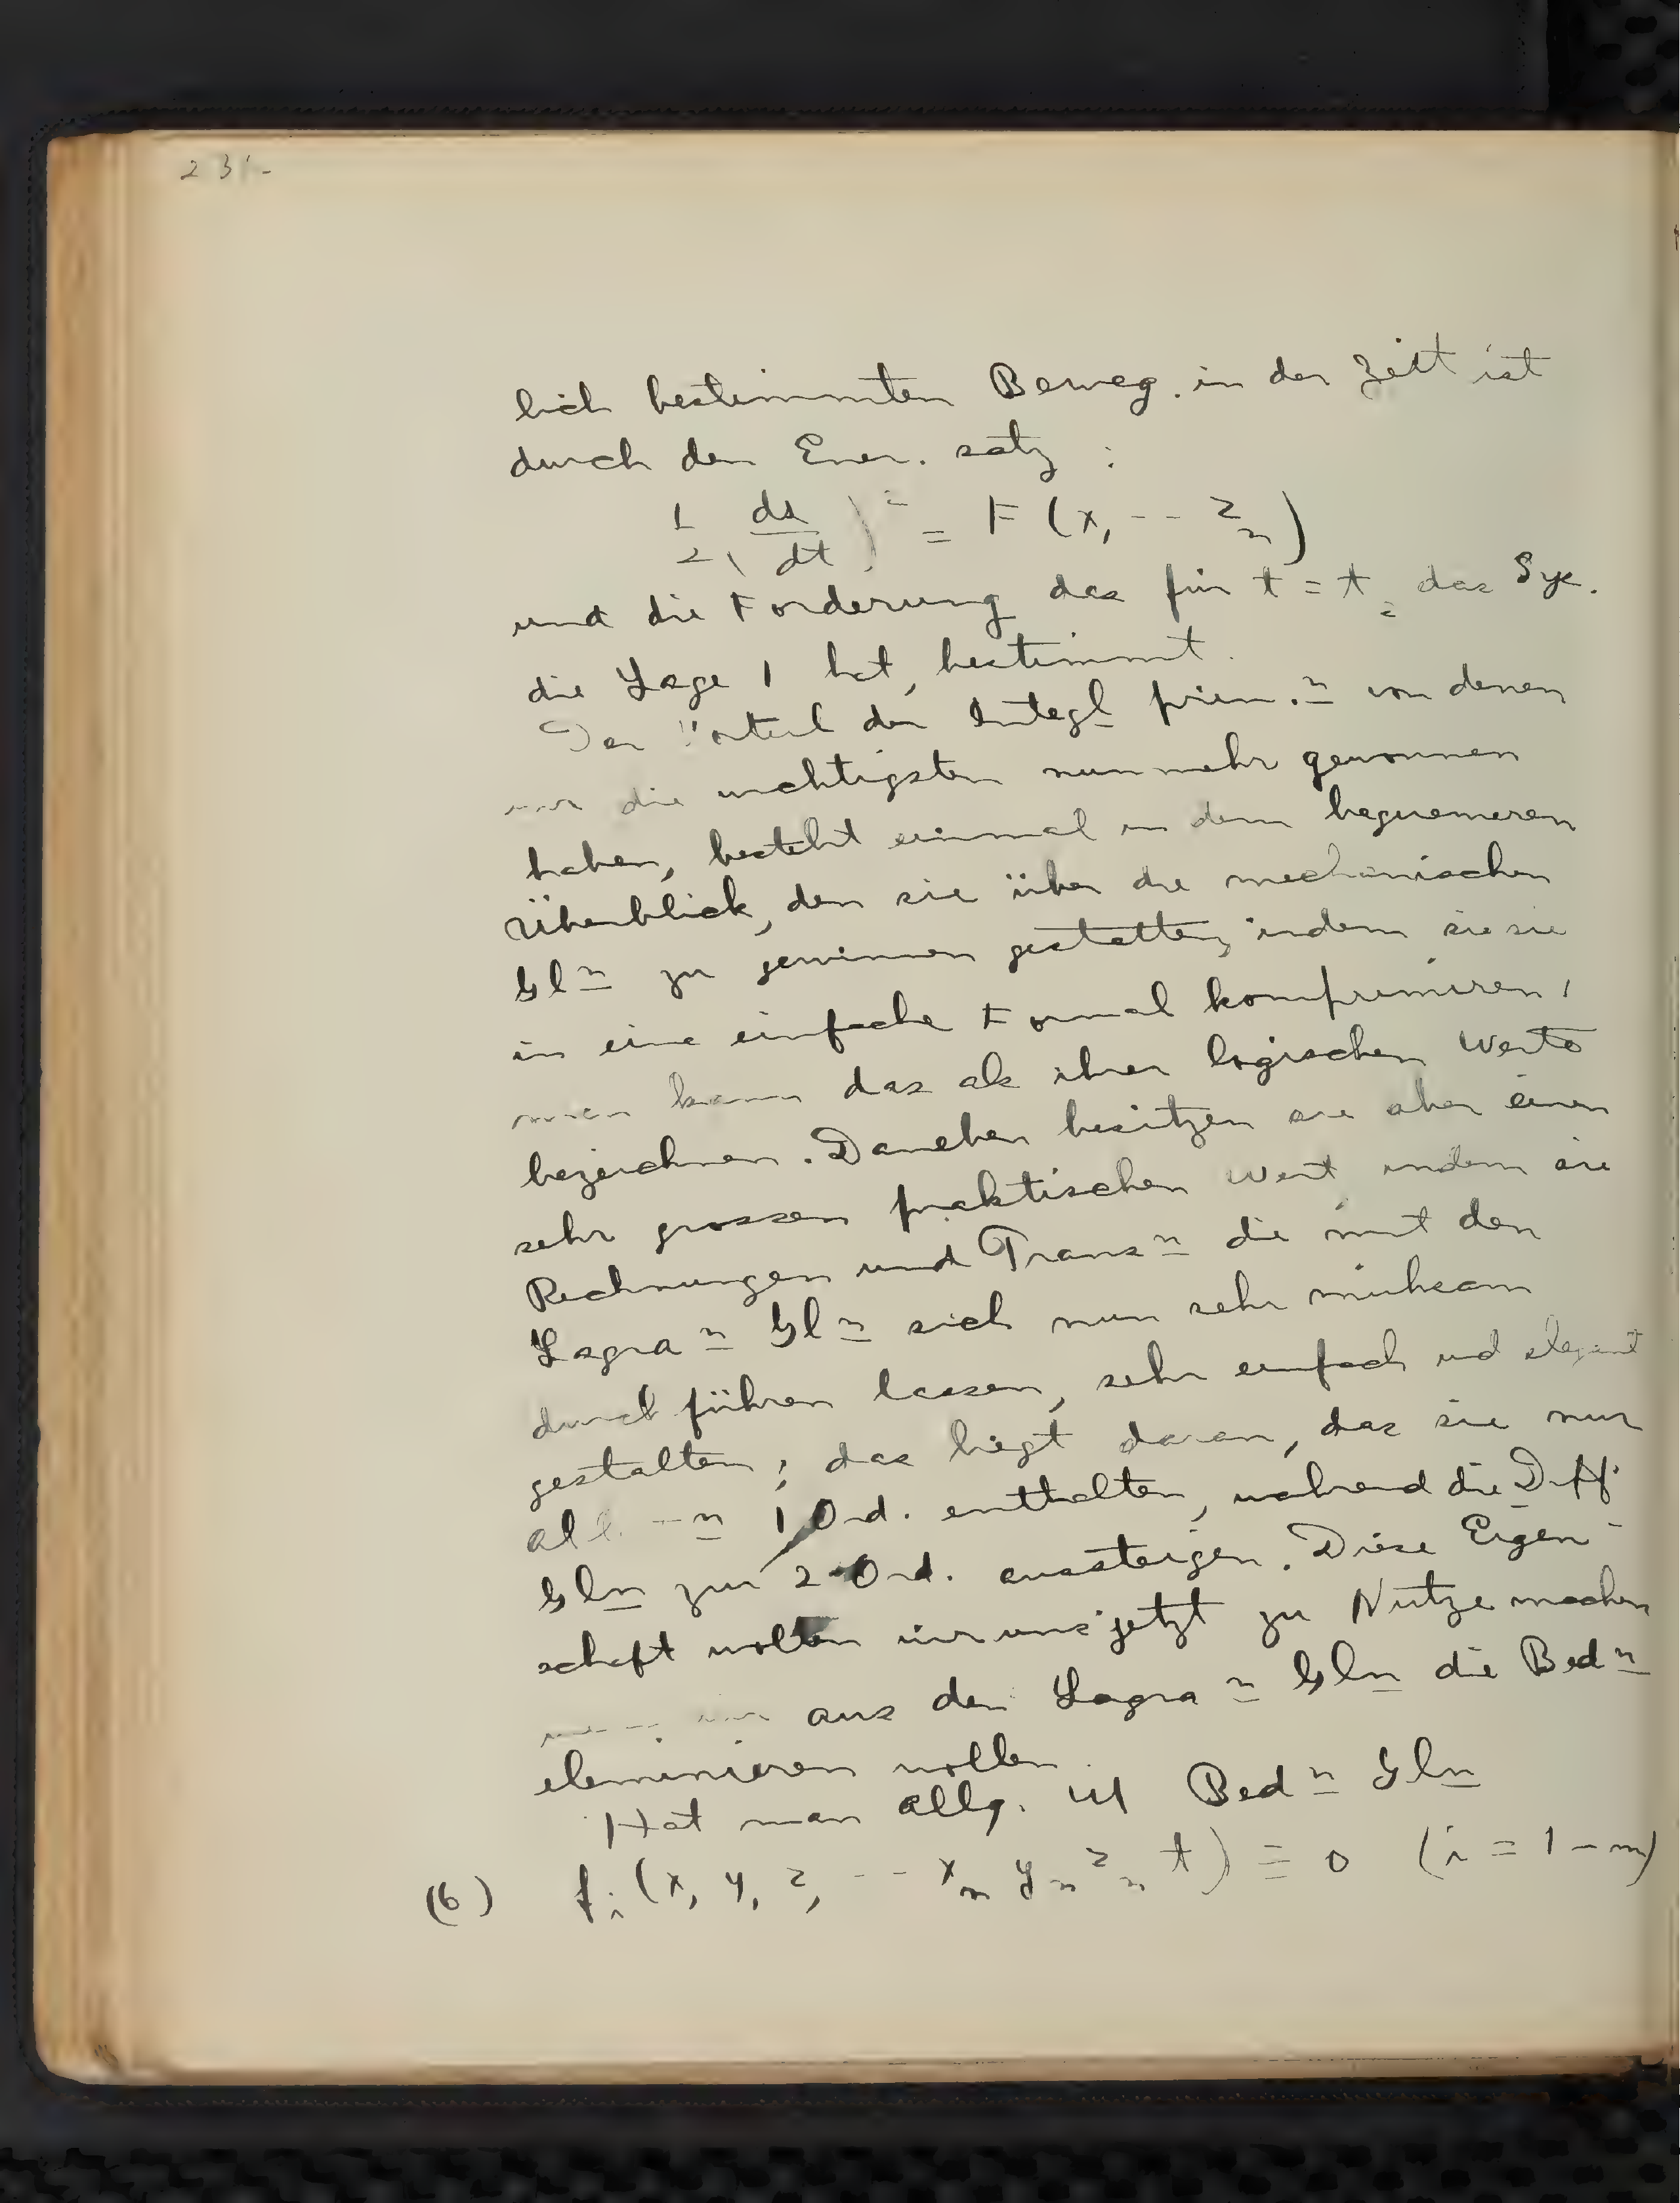 231-
lich bestimmten Beweg. in der Zeit ist
durch den Ener. satz :
1/2 (ds/dt)² = F (x, -- zₙ)
und die Forderung das für t = t₂ das Sys.
die Lage 1 hat, bestimmt.
Der Vorteil der Integl prin.n von denen
wir die wichtigsten nunmehr gewonnen
haben, besteht einmal in dem bequemeren
Überblick, den sie über die mechanischen
Gln zu gewinnen gestatten, indem sie sie
in eine einfache Formal komprimiren,
man kann das als ihren logischen Werte
bezeichnen. Daneben besitzen sie aber einen
sehr grossen praktischen Wert, indem sie
Rechnungen und Transn die mit den
Lagran Gln sich nun sehr mühsam
durch führen lassen, sehr einfach und elegant
gestalten; das liegt daran, das sie nur
1 Ord. enthalten, während die Diff.
Gln zur 2 Ord. aussteigen. Diese Eigen-
schaft wollen wir uns jetzt zu Nutze machen
wir aus den Lagran Gln die Bedn
eleminieren wollen.
Hat man allg. m Bedn Gln
(6) fᵢ (x, y, z, -- xₙ yₙ zₙ t) ≡ 0 (i = 1 – m)